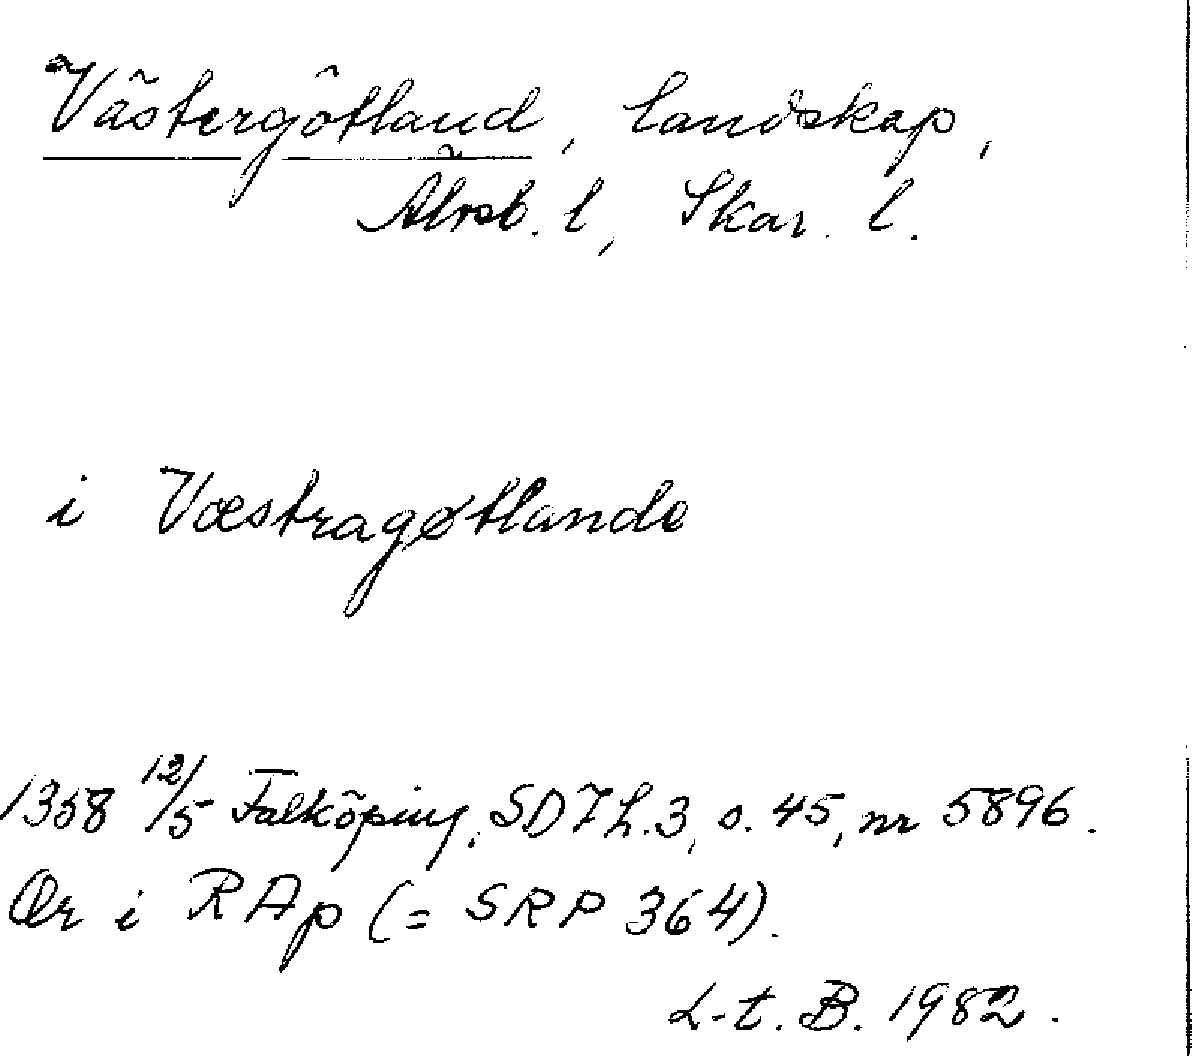 Västergötland, landskap,
Älvsb. l, Skar. l.
i Væstragøtlande
1358 12/5 Falköping, SD 7 h. 3, s. 45, nr 5896.
Or i RAp (= SRP 364).
L-t. B. 1982.